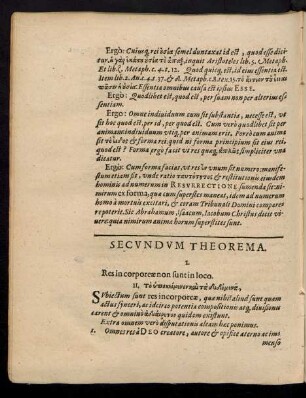 Ergo: Cuiusq; rei semel duntaxat id est, quod esse dici-
tur. inquit Aristoteles lib. 5. Metaph.
Et lib. Metaph. c. 4. t. 12. Quod quicq; est, id eius essentia est.
Item lib. 2. An. c. 4. 37. & Metaph.
Essentia omnibus causa est ipsius ESSE.
Ergo: Quodlibet est, quod est, per suam non per alterius es-
sentiam.
Ergo: Omne individuum cum sit substantia, necesse est, ut
sit hoc quod est, per id, per quod est. Cum vero quodlibet sit per
animam individuum utiq; per animam erit. Porro cum anima
sit & forma rei. quid ni forma principium sit eius rei
quod est? Forma ergo facit ut res quæq; simpliciter una
dicatur.
Ergo: Cum forma faciat, ut res una sit numero; manife-
stum etiam sit, unde ratio & restitutionis eiusdem
hominis ad numerum in RESURRECTIONE sumenda sit: ni-
mirum ex forma, qua cum superstes maneat, idem ad numerum
homo à mortuis excitari, & coram Tribunali Domini compare-
re poterit. Sic Abrahamum, Isaacum, Iacobum Christus dicit vi-
vere: quia nimirum animæ horum superstites sunt.
SECVNDVM THEOREMA.
I.
Res incorporeæ non sunt in loco.
II.
SVbiectum sunt res incorporeæ, quæ nihil aliud sunt quam
actus synceri, ac idcirco potentia compositione atq; divisione
carent & quidem existunt.
Extra omnem verò disputationis aleam hæc ponimus.
1. Omnes res à DEO creatore, autore & opifice æterno ac im-
menso